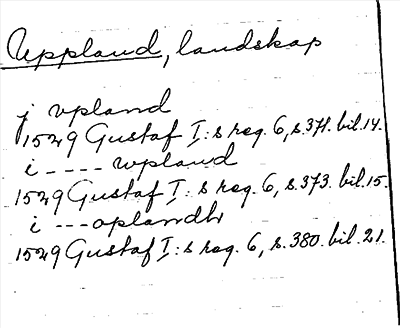 Uppland, landskap
j vpland
1529 Gustaf I:s reg. 6, s. 371. bil. 14.
i - - - - wpland
1529 Gustaf I:s reg. 6, s. 373. bil. 15.
i - - - oplandh
1529 Gustaf I:s reg. 6, s. 380. bil. 21.